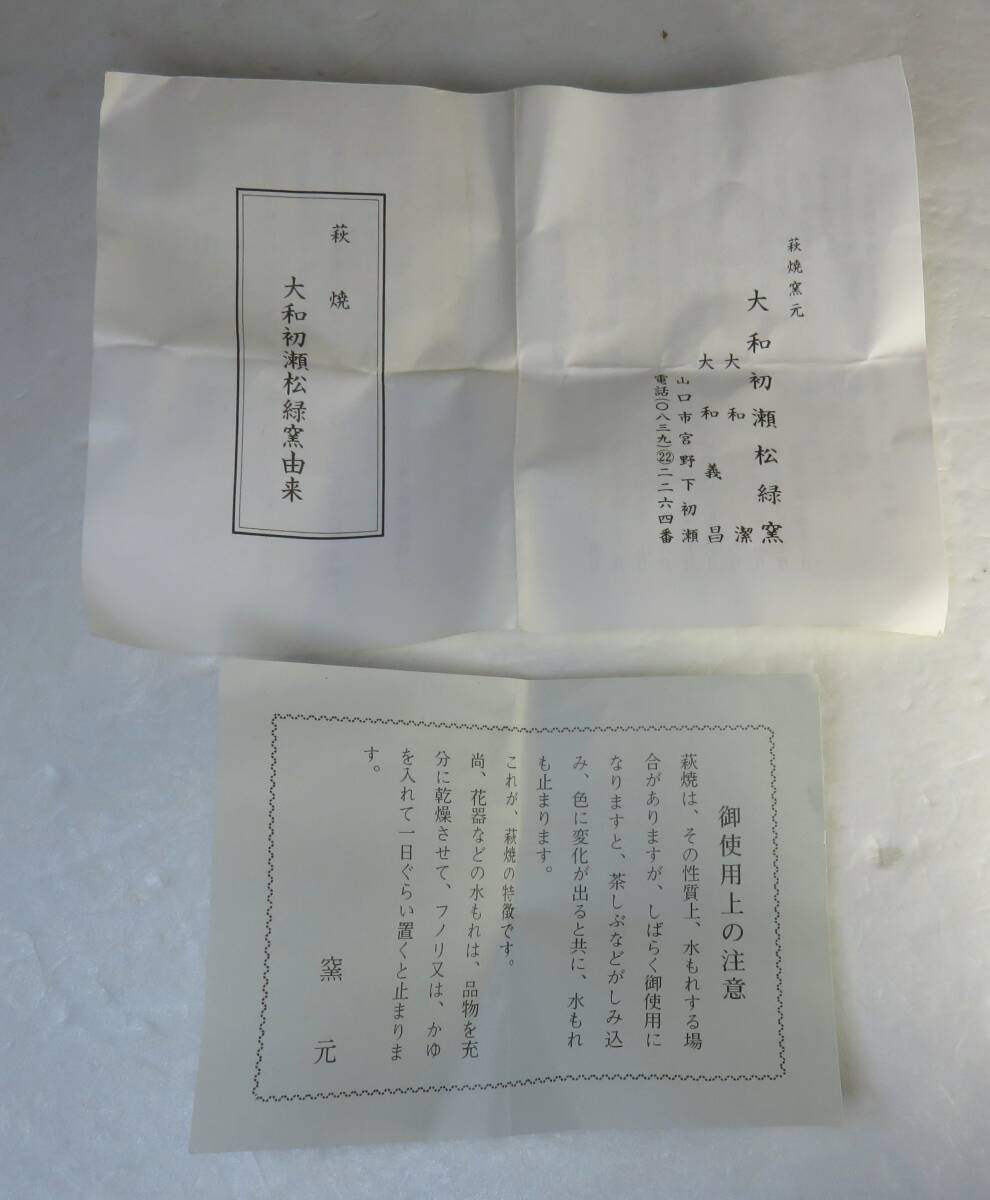 萩焼窯元
大和初瀬松緑窯
大和潔
大和義昌
山口市宮野下初瀬
電話(〇八三九)㉒二二六四番
萩焼
大和初瀬松緑窯由来
御使用上の注意
萩焼は、その性質上、水もれする場
合がありますが、しばらく御使用に
なりますと、茶しぶなどがしみ込
み、色に変化が出ると共に、水もれ
も止まります。
これが、萩焼の特徴です。
尚、花器などの水もれは、品物を充
分に乾燥させて、フノリ又は、かゆ
を入れて一日ぐらい置くと止まりま
す。
窯元